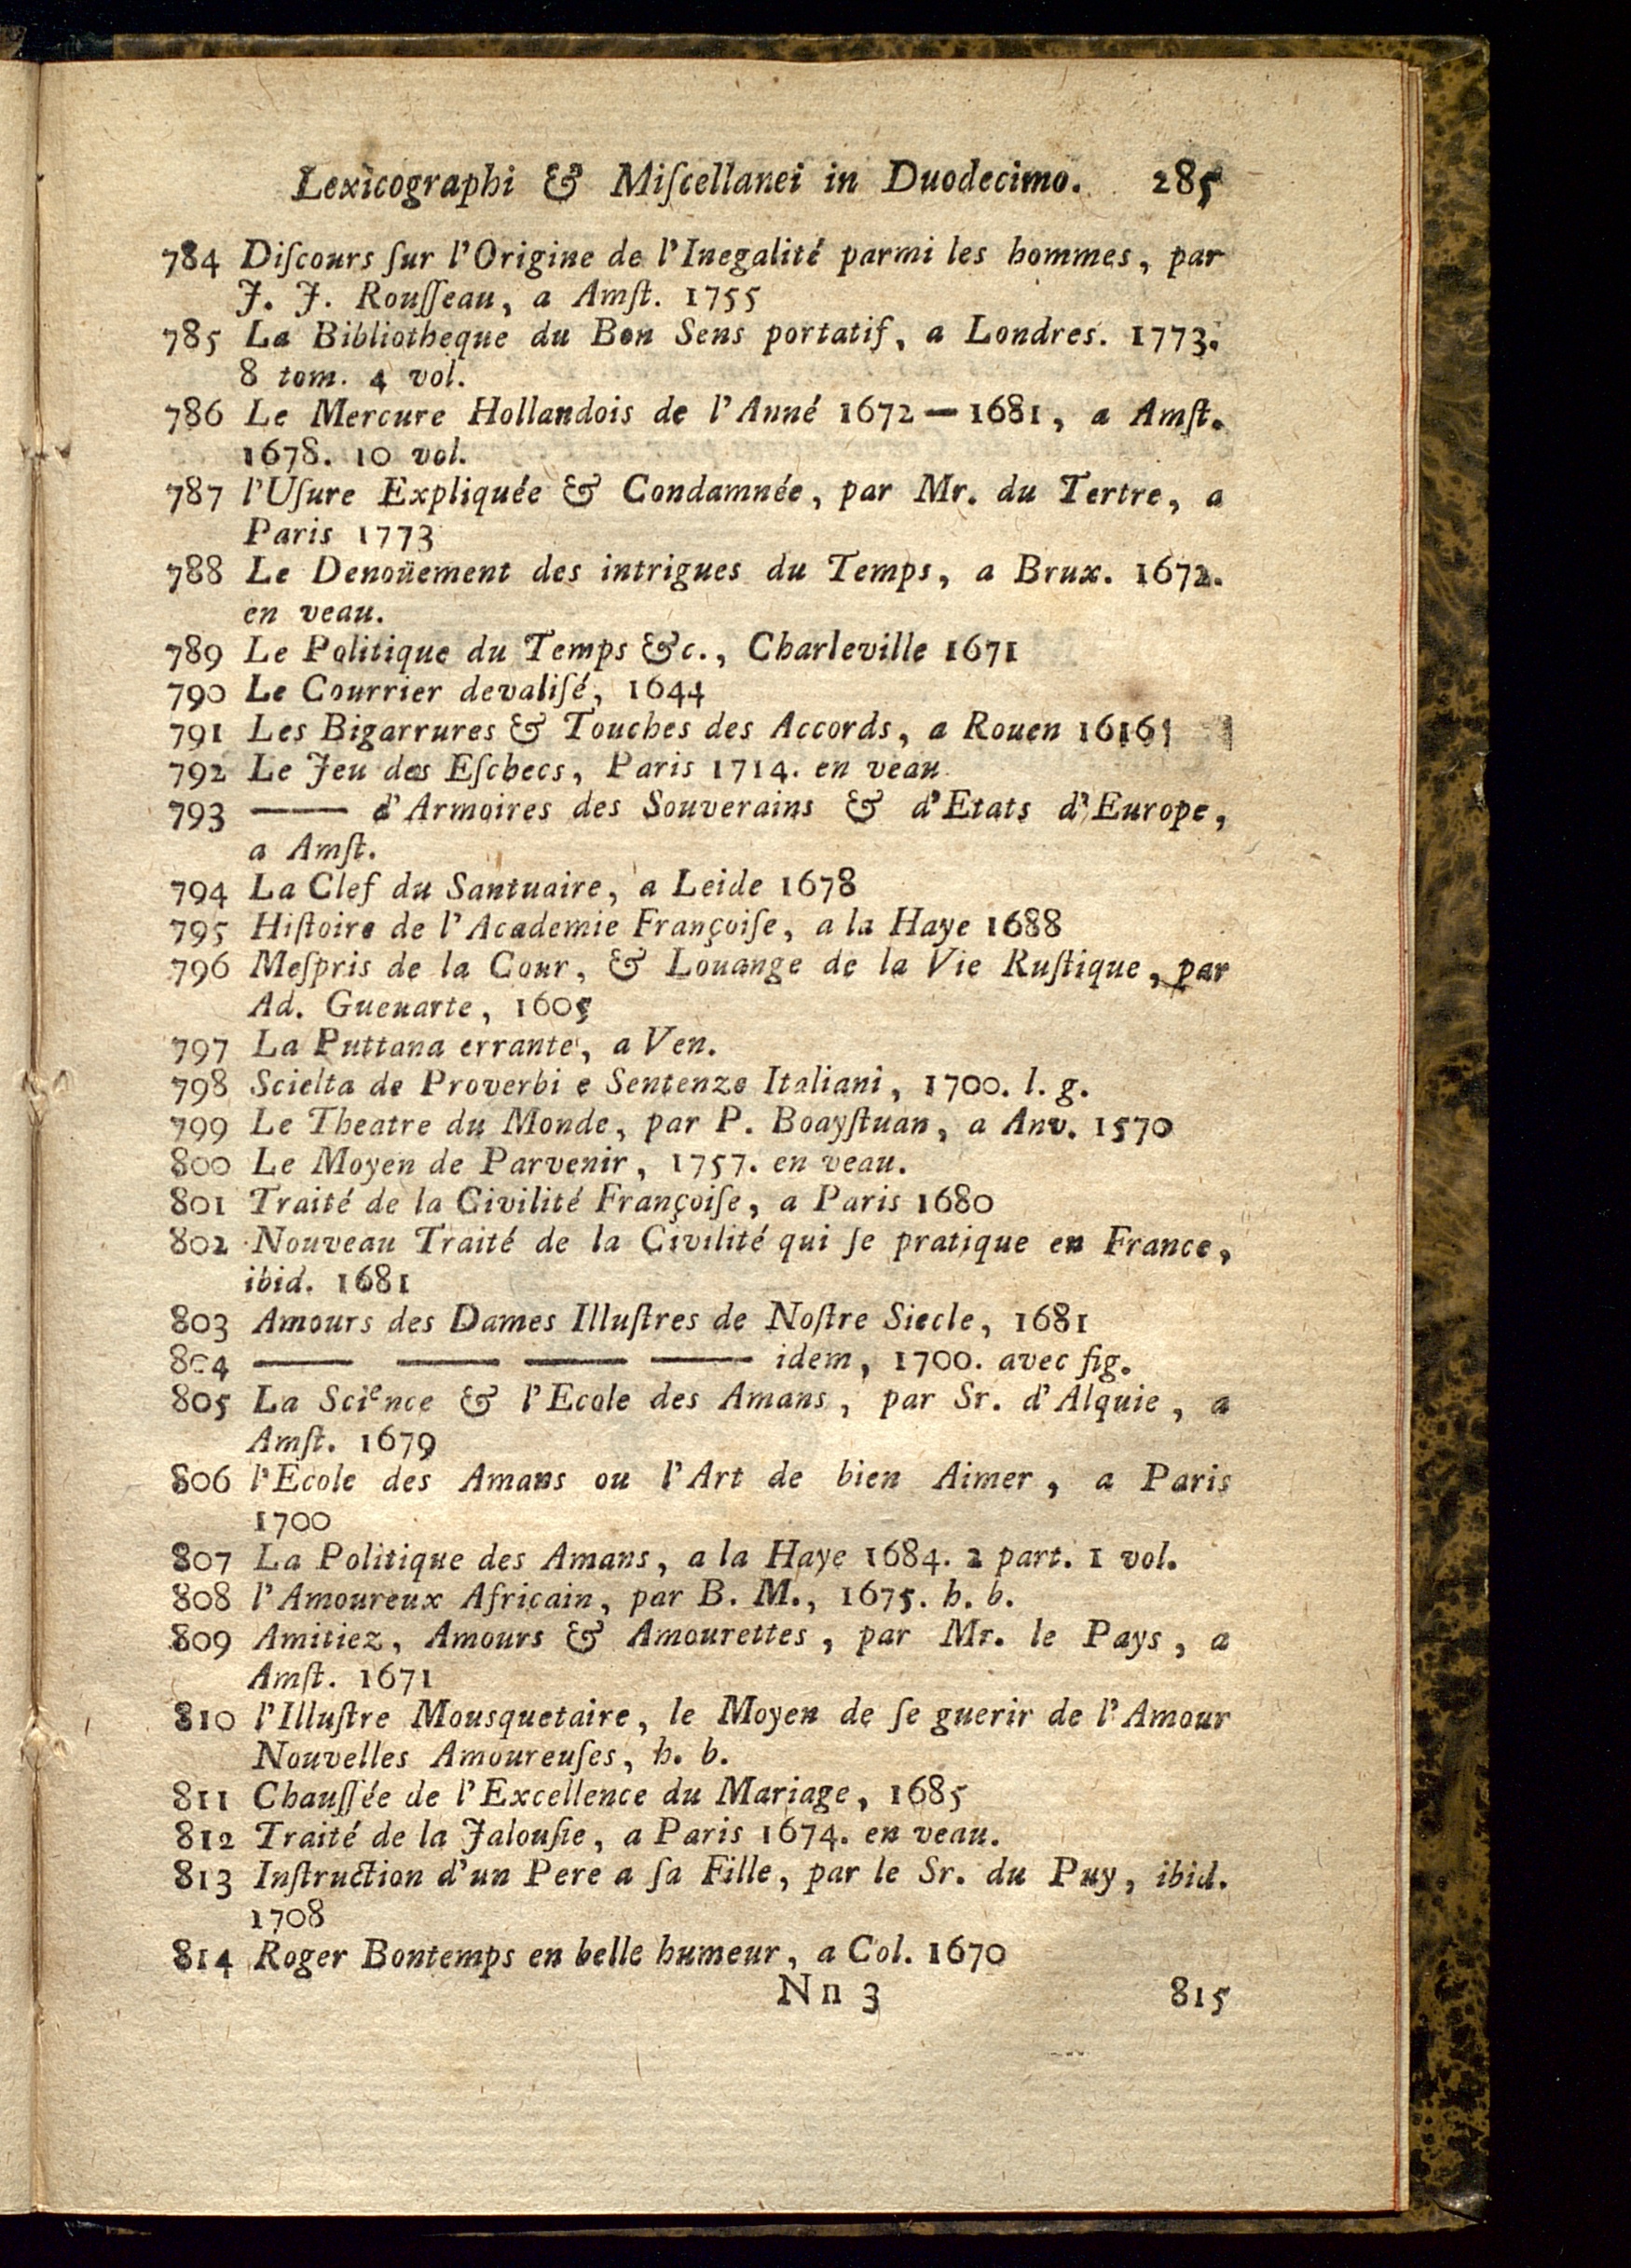 Lexicographi & Miſcellanei in Duodecimo. 285
784 Diſcours ſur l'Origine de l'Inegalité parmi les hommes, par
J. J. Rouſſeau, a Amſt. 1755
785 La Bibliotheque du Bon Sens portatif, a Londres. 1773.
8 tom. 4 vol.
786 Le Mercure Hollandois de l'Anné 1672 — 1681, a Amſt.
1678. 10 vol.
787 l'Uſure Expliquée & Condamnée, par Mr. du Tertre, a
Paris 1773
788 Le Denoüement des intrigues du Temps, a Brux. 1672.
en veau.
789 Le Politique du Temps &c., Charleville 1671
790 Le Courrier devaliſé, 1644
791 Les Bigarrures & Touches des Accords, a Rouen 1616
792 Le Jeu des Eſchecs, Paris 1714. en veau
793 —— d'Armoires des Souverains & d'Etats d'Europe,
a Amſt.
794 La Clef du Santuaire, a Leide 1678
795 Hiſtoire de l'Academie Françoiſe, a la Haye 1688
796 Meſpris de la Cour, & Louange de la Vie Ruſtique, par
Ad. Guenarte, 1605
797 La Puttana errante, a Ven.
798 Scielta de Proverbi e Sentenze Italiani, 1700. l. g.
799 Le Theatre du Monde, par P. Boayſtuan, a Anv. 1570
800 Le Moyen de Parvenir, 1757. en veau.
801 Traité de la Civilité Françoiſe, a Paris 1680
802 Nouveau Traité de la Civilité qui ſe pratique en France,
ibid. 1681
803 Amours des Dames Illuſtres de Noſtre Siecle, 1681
804 —— —— —— —— idem, 1700. avec fig.
805 La Science & l'Ecole des Amans, par Sr. d'Alquie, a
Amſt. 1679
806 l'Ecole des Amans ou l'Art de bien Aimer, a Paris
1700
807 La Politique des Amans, a la Haye 1684. 2 part. 1 vol.
808 l'Amoureux Africain, par B. M., 1675. h. b.
809 Amitiez, Amours & Amourettes, par Mr. le Pays, a
Amſt. 1671
810 l'Illuſtre Mousquetaire, le Moyen de ſe guerir de l'Amour
Nouvelles Amoureuſes, h. b.
811 Chauſſée de l'Excellence du Mariage, 1685
812 Traité de la Jalouſie, a Paris 1674. en veau.
813 Inſtruction d'un Pere a ſa Fille, par le Sr. du Puy, ibid.
1708
814 Roger Bontemps en belle humeur, a Col. 1670
Nn 3 815